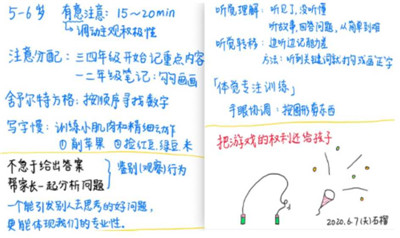 5-6岁 有意注意：15~20min
↳调动主观积极性
注意分配：三四年级开始记重点内容
一二年级笔记：勾勾画画
舒尔特方格：按顺序寻找数字
写字慢：训练小肌肉和精细动作
①削苹果 ②捡红豆.绿豆.米
不急于给出答案
带家长一起分析问题
鉴别(观察)行为
一个能引发别人去思考的好问题，
更能体现我们的专业性。
听觉理解：听见了，没听懂
听故事，回答问题，从简单到难
听觉转移：边听边记能力差
方法：听到关键词就打勾或画正字
「体觉专注训练」
手眼协调：按图形剪东西
把游戏的权利还给孩子
2020.6.7(天)石榴